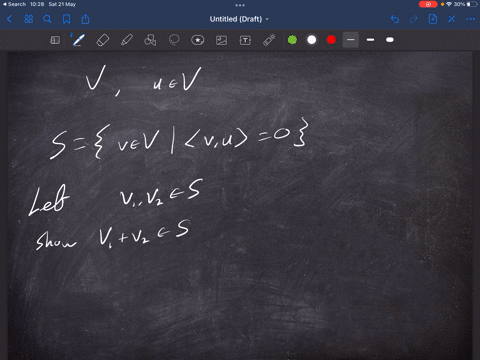 Search 10:28 Sat 21 May 30%
Untitled (Draft)
V, u ∈ V
S = { v ∈ V | <v, u> = 0 }
Let v₁, v₂ ∈ S
show v₁ + v₂ ∈ S